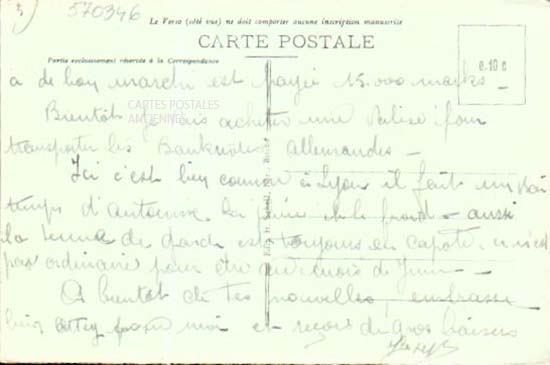 570346
Le Verso (côté vue) ne doit comporter aucune inscription manuscrite
CARTE POSTALE
Partie exclusivement réservée à la Correspondance
e.10 c
a de bon marché est payée 15.000 marks -
CARTES POSTALES
ANCIENNES
Bientôt je vais acheter une valise pour
transporter les Banknotes allemandes -
Ici c'est bien comme à Lyon il fait un
temps d'automne la pluie et le froid - aussi
la tenue de garde est toujours en capote. ce n'est
pas ordinaire pour être au mois de Juin -
A bientôt de tes nouvelles, embrasse
bien pour moi et reçois de gros baisers